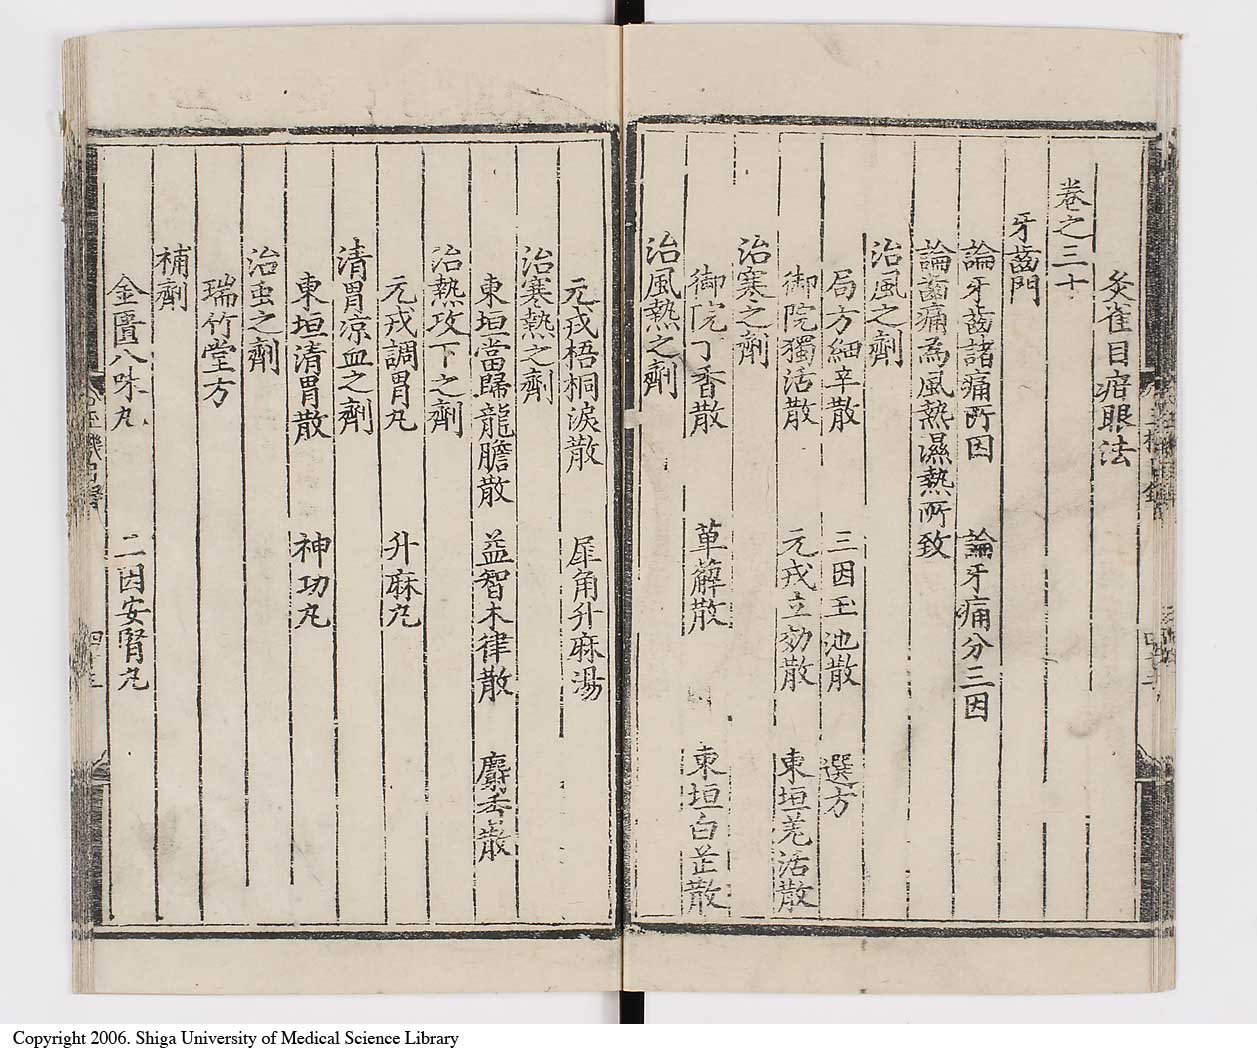 灸雀目疳眼法
卷之三十
牙齒門
論牙齒諸痛所因 論牙痛分三因
論齒痛為風熱濕熱所致
治風之劑
局方細辛散 三因玉池散 選方
御院獨活散 元戎立効散 東垣羌活散
治寒之劑
御院丁香散 草薢散 東垣白芷散
治風熱之劑
元戎梧桐淚散 犀角升麻湯
治寒熱之劑
東垣當歸龍膽散 益智木律散 麝香散
治熱攻下之劑
元戎調胃丸 升麻丸
清胃凉血之劑
東垣清胃散 神功丸
治䖝之劑
瑞竹堂方
補劑
金匱八味丸 三因安腎丸
Copyright 2006. Shiga University of Medical Science Library